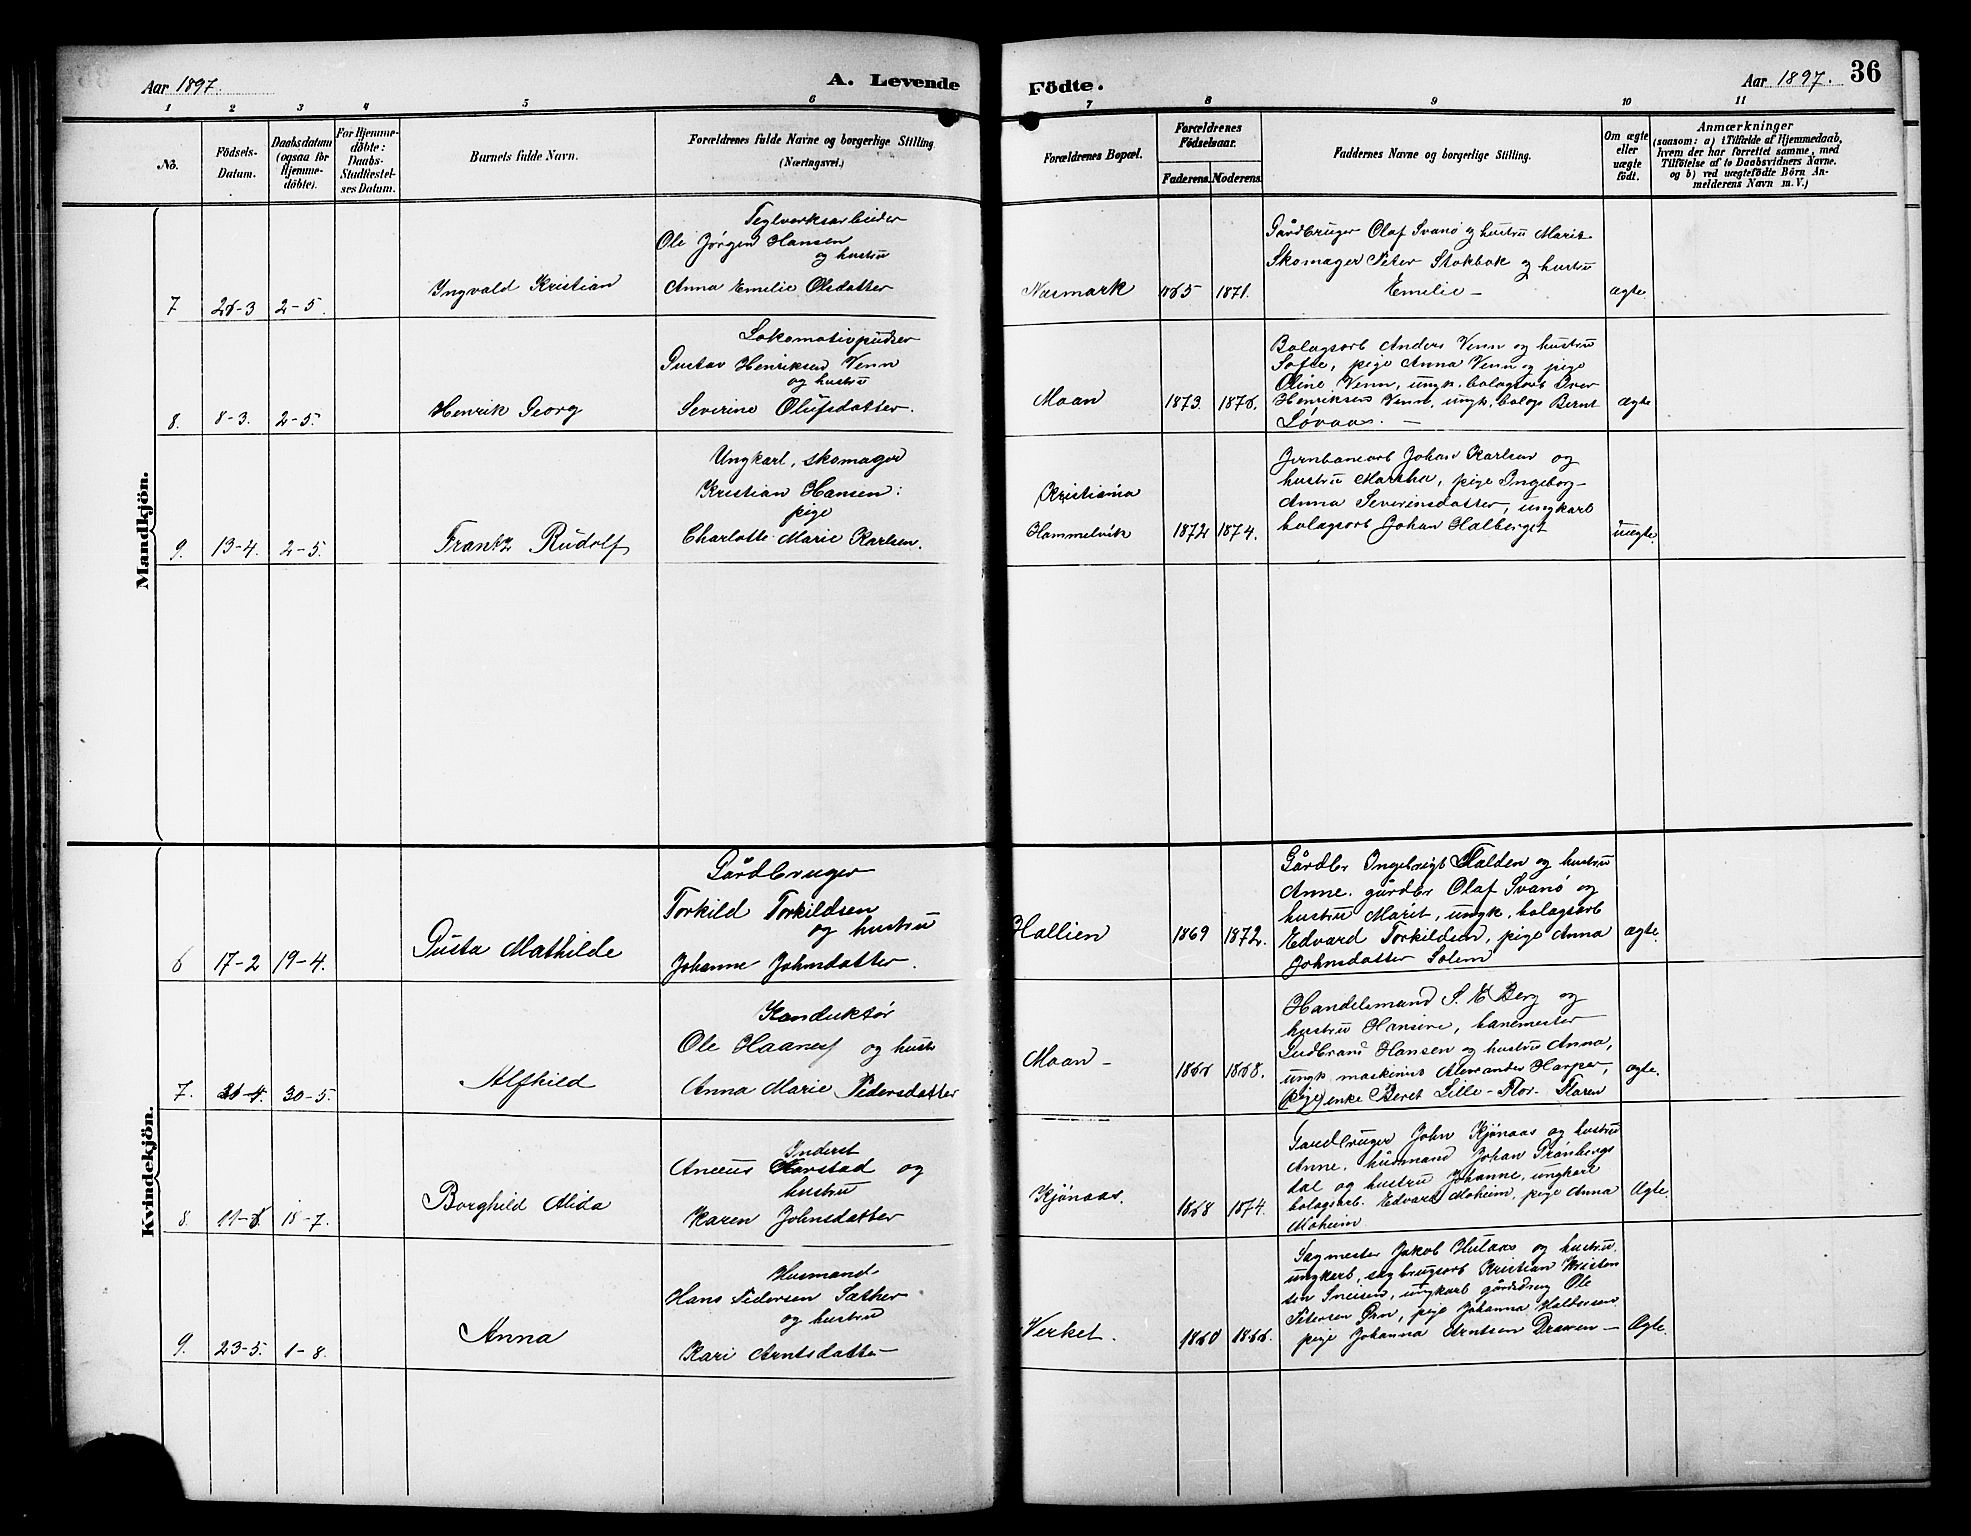 Aar 1897.
A. Levende Födte.
Aar 1897.
36
1 2 3 4 5 6 7 8 9 10 11
No.
Födsels-Datum.
Daabsdatum (ogsaa for Hjemme-döbte).
For Hjemme-döbte: Daabs-Stadfæstel-ses Datum.
Barnets fulde Navn.
Forældrenes fulde Navne og borgerlige Stilling. (Næringsvei.)
Forældrenes Bopæl.
Forældrenes Födselsaar.
Faderens. Moderens.
Faddernes Navne og borgerlige Stilling.
Om ægte eller uægte födt.
Anmærkninger
(saasom: a) i Tilfælde af Hjemmedaab,
hvem der har forrettet samme, med
Tilföielse af to Daabsvidners Navne.
og b) ved uægtefödte Börn An-
melderens Navn m. V.)
Mandkjön.
7 26-3 2-5.
Ingvald Kristian
Teglverksarbeider
Ole Jörgen Hansen
og hustru
Anna Emilie Olsdatter
Næsmark 1865 1871.
Gårdbruger Olaf Svanö og hustru Marit
Skomager Peter Stokbok og hustru
Emelie –
ægte
8. 8-3. 2-5.
Henrik Georg
Lokomotivpudser
Gustav Henriksen Venn
og hustru
Severine Olufsdatter.
Moan 1873. 1876.
Bolagsarb Anders Venn og hustru
Sofie, pige Anna Venn og pige
Oline Venn, ungk. bolagsarb Iver
Henriksen Venn, ungk. bolags Bernt
Løvaas. –
ægte
9. 13-4. 2-5.
Frantz Rudolf
Ungkarl, skomager
Kristian Hansen:
pige
Charlotte Marie Karlsen.
Kristiania
Hammelvik 1872 1874.
Jernbanearb Johan Karlsen og
hustru Martha, pige Ingeborg
Anna Severinsdatter, ungkarl
bolagsarb Johan Halberget
uægte.
Kvindekjön.
6 17-2 19-4.
Gusta Mathilde
Gårdbruger
Torkild Torkildsen
og hustru
Johanne Johnsdatter.
Hallien 1869 1872.
Gårdbr Ingebrigt Halden og hustru
Anne. gårdbr Olaf Svanö og
hustru Marit, ungk. bolagsarb
Edvard Torkildsen, pige Anna
Johnsdatter Solem
ægte.
7. 30-5.
Alfhild
Konduktør
Ole Haanes og hustr
Anna Marie Pedersdatter
Moan – 1868.
Handelsmand S. E Berg og
hustru Hansine, banemester
Gudbrand Hansen og hustru Anna,
ungk maskinist Alexander Harper,
(pige) enke Beret Lille-Flor-
ægte.
8. 11-6 18-7.
Borghild Alida
Inderst
Aneus Harstad og
hustru
Karen Johnsdatter
Kjønaas. 1868 1874.
Gardbruger John Kjønaas og hustru
Anne. husmand Johan Grønbergs
dal og hustru Johanne, ungkarl
bolagsarb. Edvard Moheim, pige Anna
Moheim
Ægte.
9. 23-5. 1-8.
Anna
Husmand
Hans Pedersen Sæther
og hustru
Kari Arntsdatter
Verket. 1860 1866.
Sagmester Jakob Hulaas og hustru.
ungkarl, sagbrugsarb Kristian Kristen
sen ungkarl gårdsdreng Ole
Petersen pige Johanna Halvorsen
pige Johanna Arntsen –
Ægte.